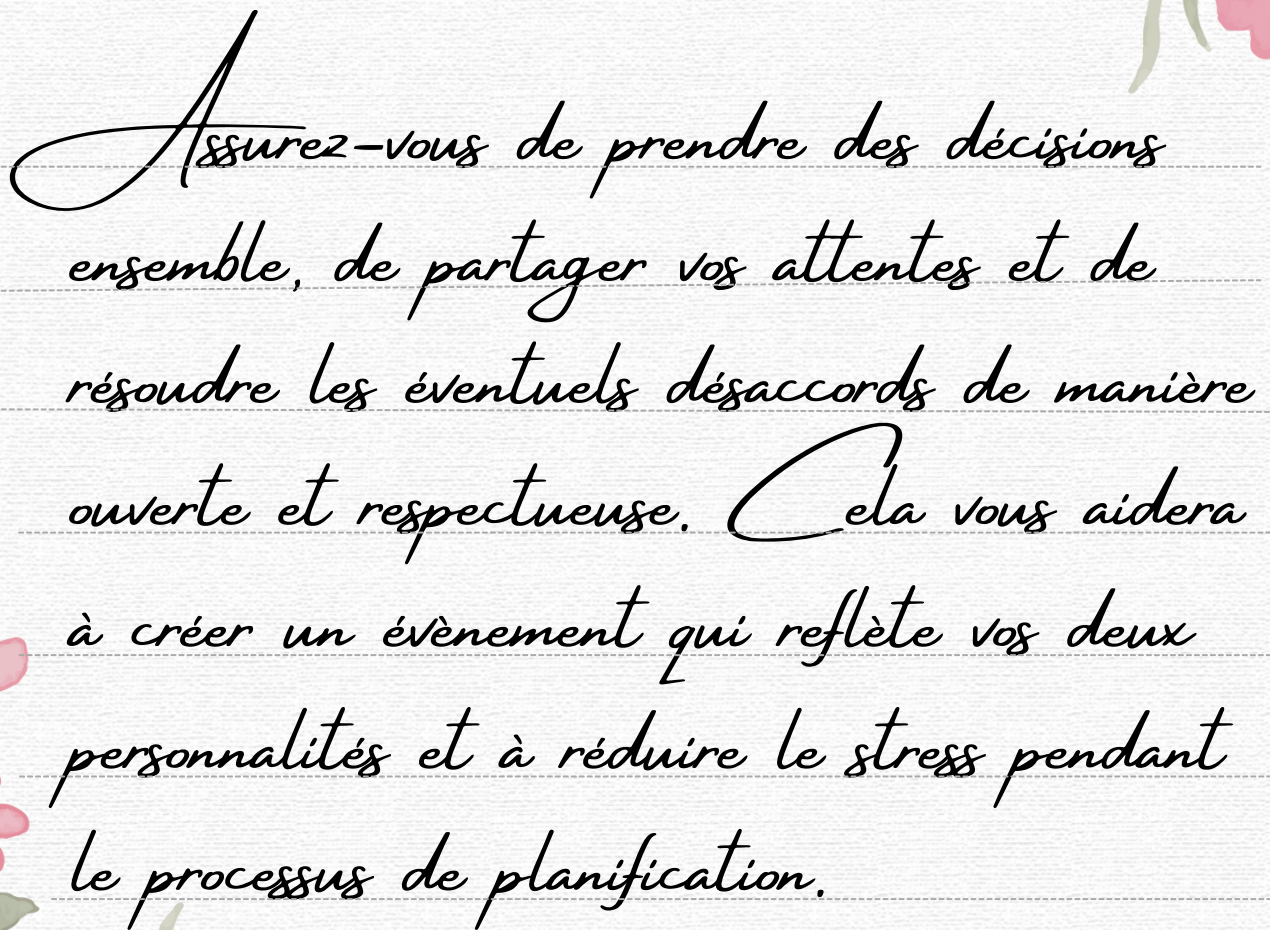 Assurez-vous de prendre des décisions
ensemble, de partager vos attentes et de
résoudre les éventuels désaccords de manière
ouverte et respectueuse. Cela vous aidera
à créer un évènement qui reflète vos deux
personnalités et à réduire le stress pendant
le processus de planification.